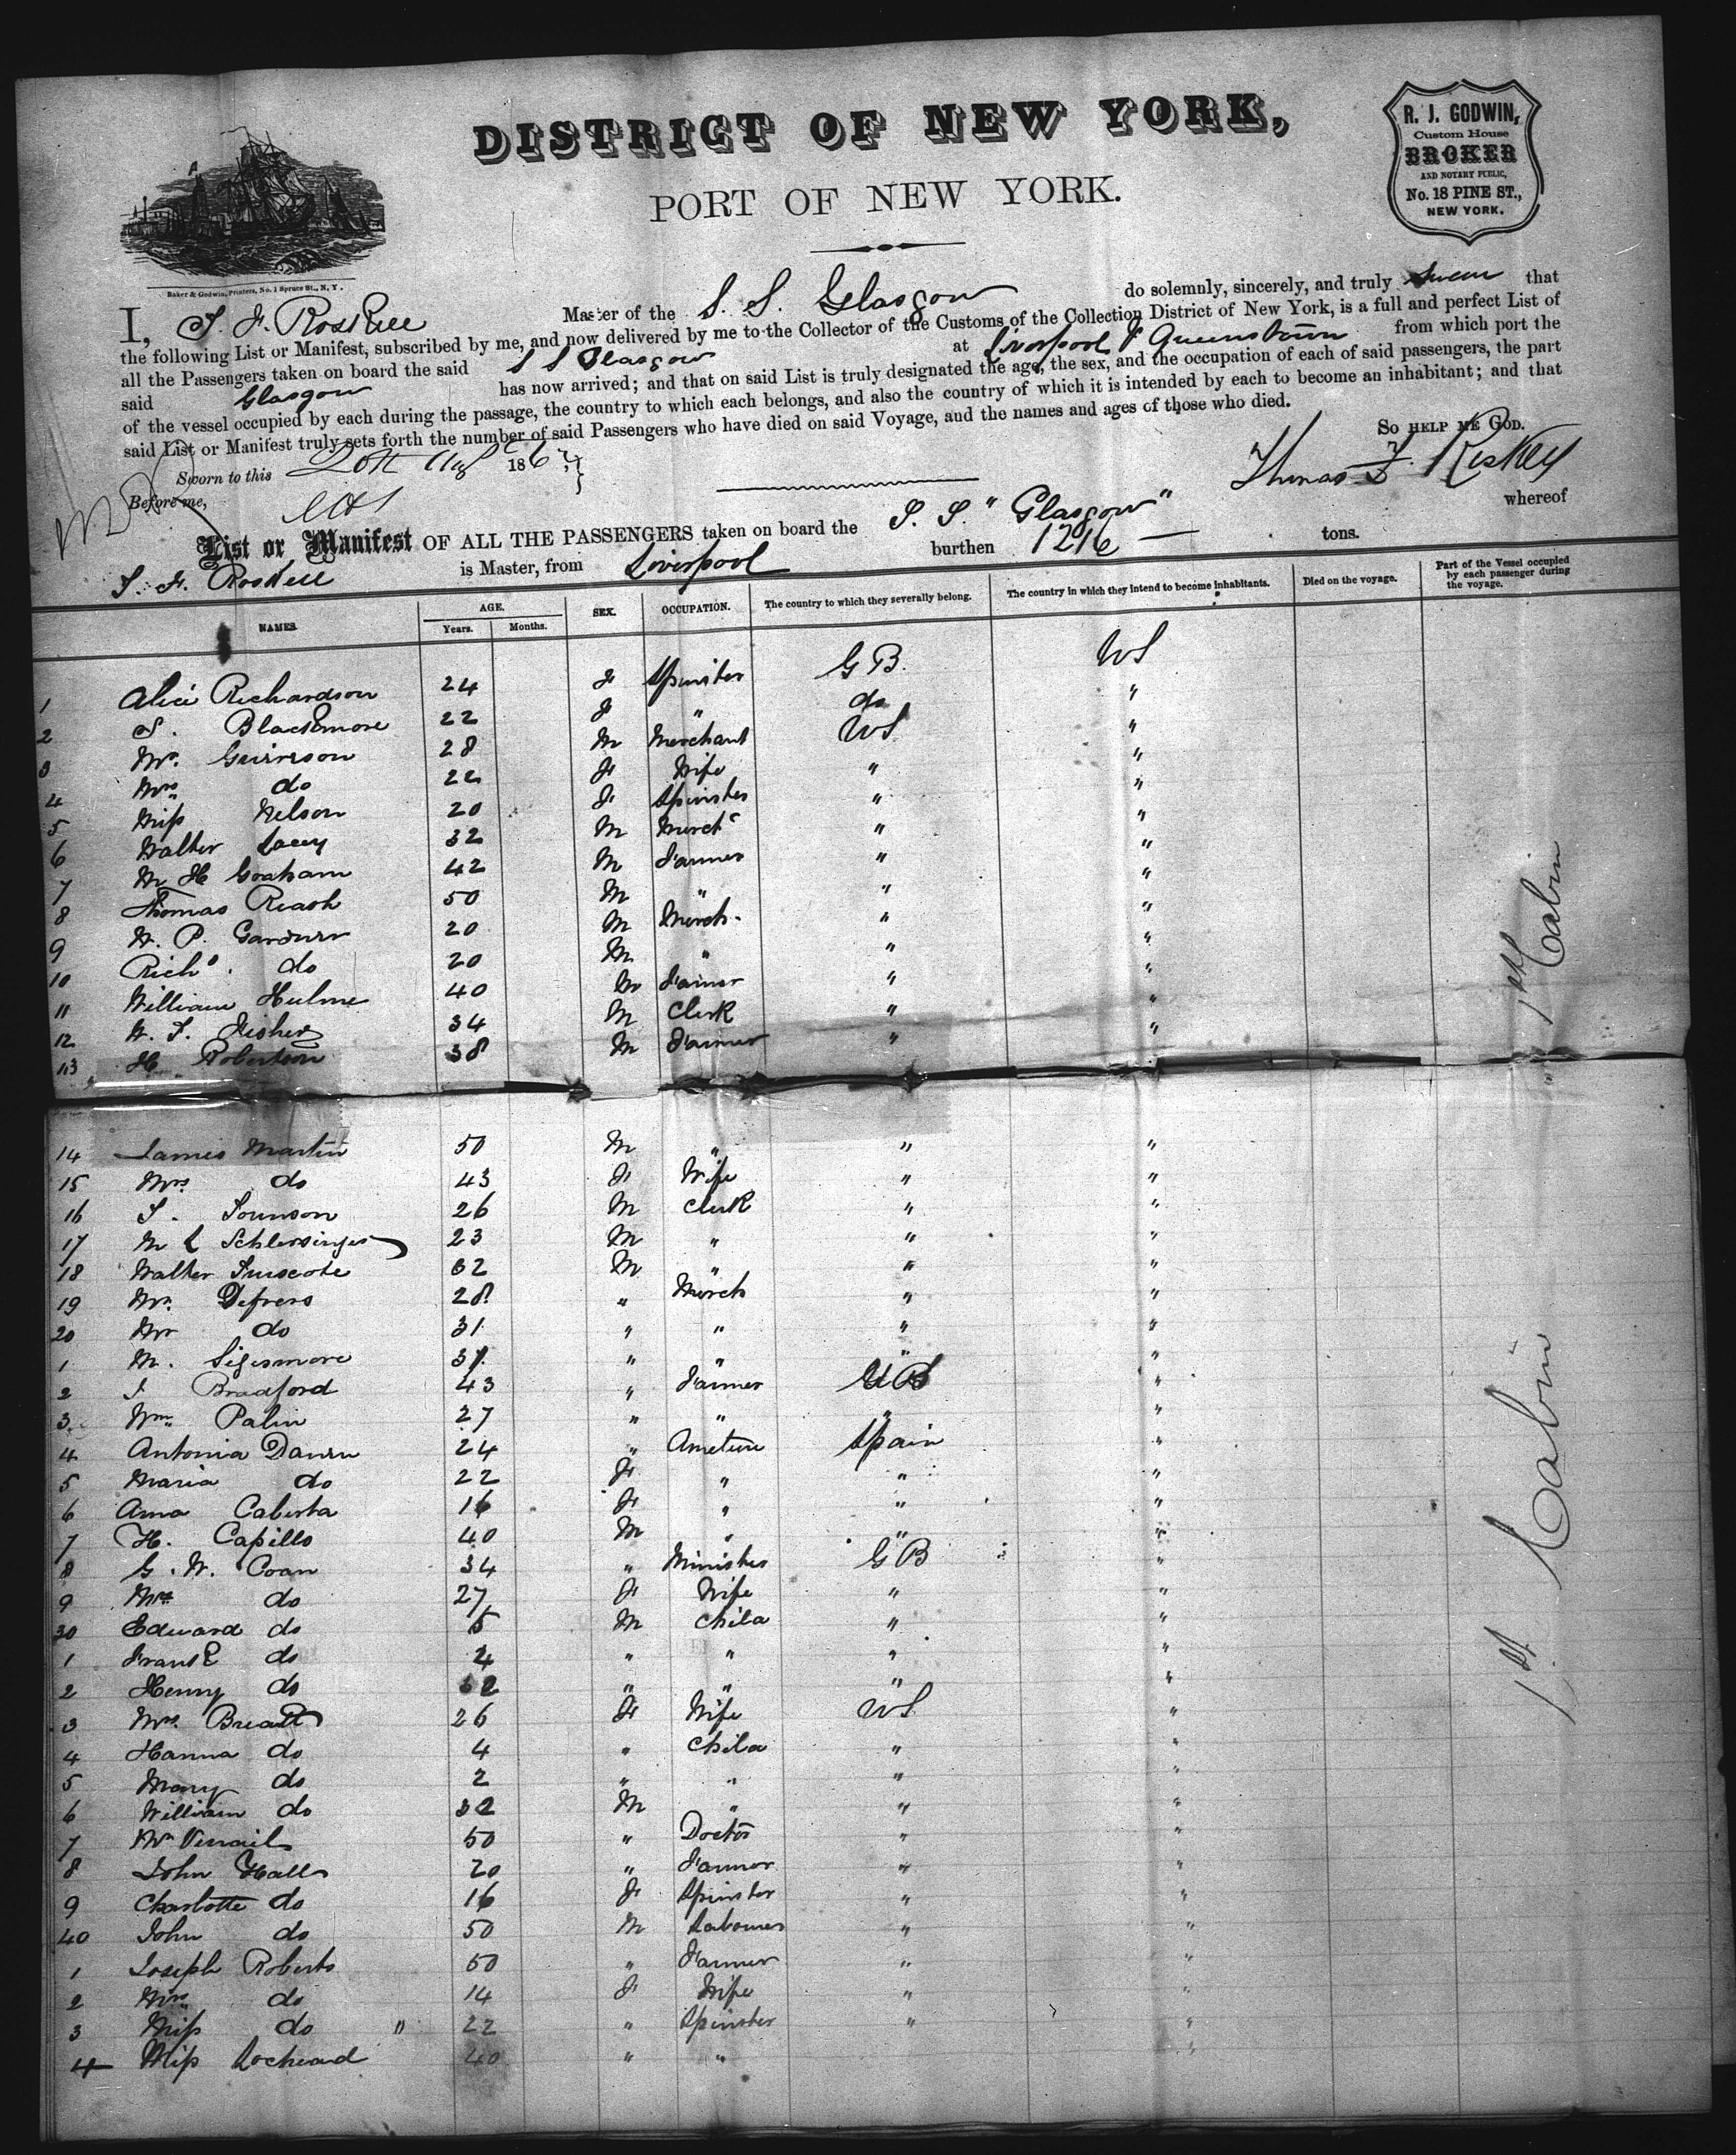 DISTRICT OF NEW YORK,
PORT OF NEW YORK.
R. J. GODWIN,
Custom House
BROKER
AND NOTARY PUBLIC,
No. 18 PINE ST.,
NEW YORK.
Baker & Godwin, Printers, No. 1 Spruce St., N. Y.
I, T. F. Roskell Master of the S. S. Glasgow do solemnly, sincerely, and truly swear that
the following List or Manifest, subscribed by me, and now delivered by me to the Collector of the Customs of the Collection District of New York, is a full and perfect List of
all the Passengers taken on board the said S S Glasgow at Liverpool & Queenstown from which port the
said Glasgow has now arrived; and that on said List is truly designated the age, the sex, and the occupation of each of said passengers, the part
of the vessel occupied by each during the passage, the country to which each belongs, and also the country of which it is intended by each to become an inhabitant; and that
said List or Manifest truly sets forth the number of said Passengers who have died on said Voyage, and the names and ages of those who died.
So HELP ME GOD.
Sworn to this 20th Aug 186
Before me,
Thomas F. Roskell
List or Manifest OF ALL THE PASSENGERS taken on board the S. S. "Glasgow" whereof
T. F. Roskell is Master, from Liverpool burthen 1216 — tons.
NAMES. AGE. Years. Months. SEX. OCCUPATION. The country to which they severally belong. The country in which they intend to become inhabitants. Died on the voyage. Part of the Vessel occupied by each passenger during the voyage.
1 Alice Richardson 24 F Spinster G B. US
2 S. Blackmore 22 F " do "
3 Mr. 28 M Merchant US "
4 Mrs do 22 F Wife " "
5 Miss Nelson 20 F Spinster " "
6 Walter Lacey 32 M Merch " "
7 Mr H Graham 42 M Farmer " "
8 Thomas Reash 50 M " " "
9 W. P. Gardner 20 M Merch. " "
10 Richd. do 20 M " " "
11 William Hulme 40 M Farmer " "
12 W. F. Fisher 34 M Clerk " "
13 H Robertson 38 M Farmer " "
1st Cabin
14 James Martin 50 M " " "
15 Mrs do 43 F Wife " "
16 T. 26 M Clerk " "
17 M L Schlessinger 23 M " " "
18 Walter 32 M " " "
19 Mr. Defrers 28 " Merch " "
20 Mr do 31 " " " "
1 M. 37 " " " "
2 J Bradford 43 " Farmer G B "
3 Wm. Palin 27 " " " "
4 Antonia 24 " Ameture Spain "
5 Maria do 22 F " " "
6 Anna Caberta 16 F " " "
7 H. Capillo 40 M " " "
8 G. W. Coan 34 " Minister G B "
9 Mrs do 27 F Wife " "
30 Edward do 5 M Child " "
1 Frank do 4 " " " "
2 Henry do 2 " " " "
3 Mrs. 26 F Wife US "
4 Hanna do 4 " Child " "
5 Mary do 2 " " " "
6 William do 32 M " " "
7 Mr 50 " Doctor " "
8 John Hall 20 " Farmer " "
9 Charlotte do 16 F Spinster " "
40 John do 50 M Labourer " "
1 Joseph Roberts 50 " Farmer " "
2 Mrs do 14 F Wife " "
3 Miss do " 22 " Spinster " "
4 Miss Lochead 40 " " "
1st Cabin